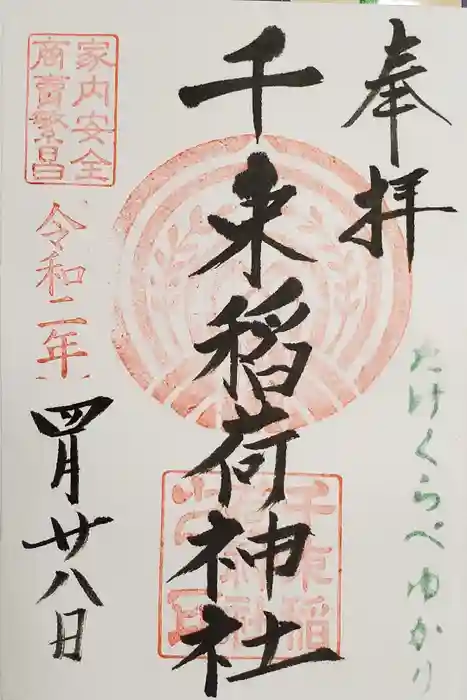 奉拝
たけくらべゆかり
千束稲荷神社
家内安全
商売繁昌
令和二年
四月廿八日